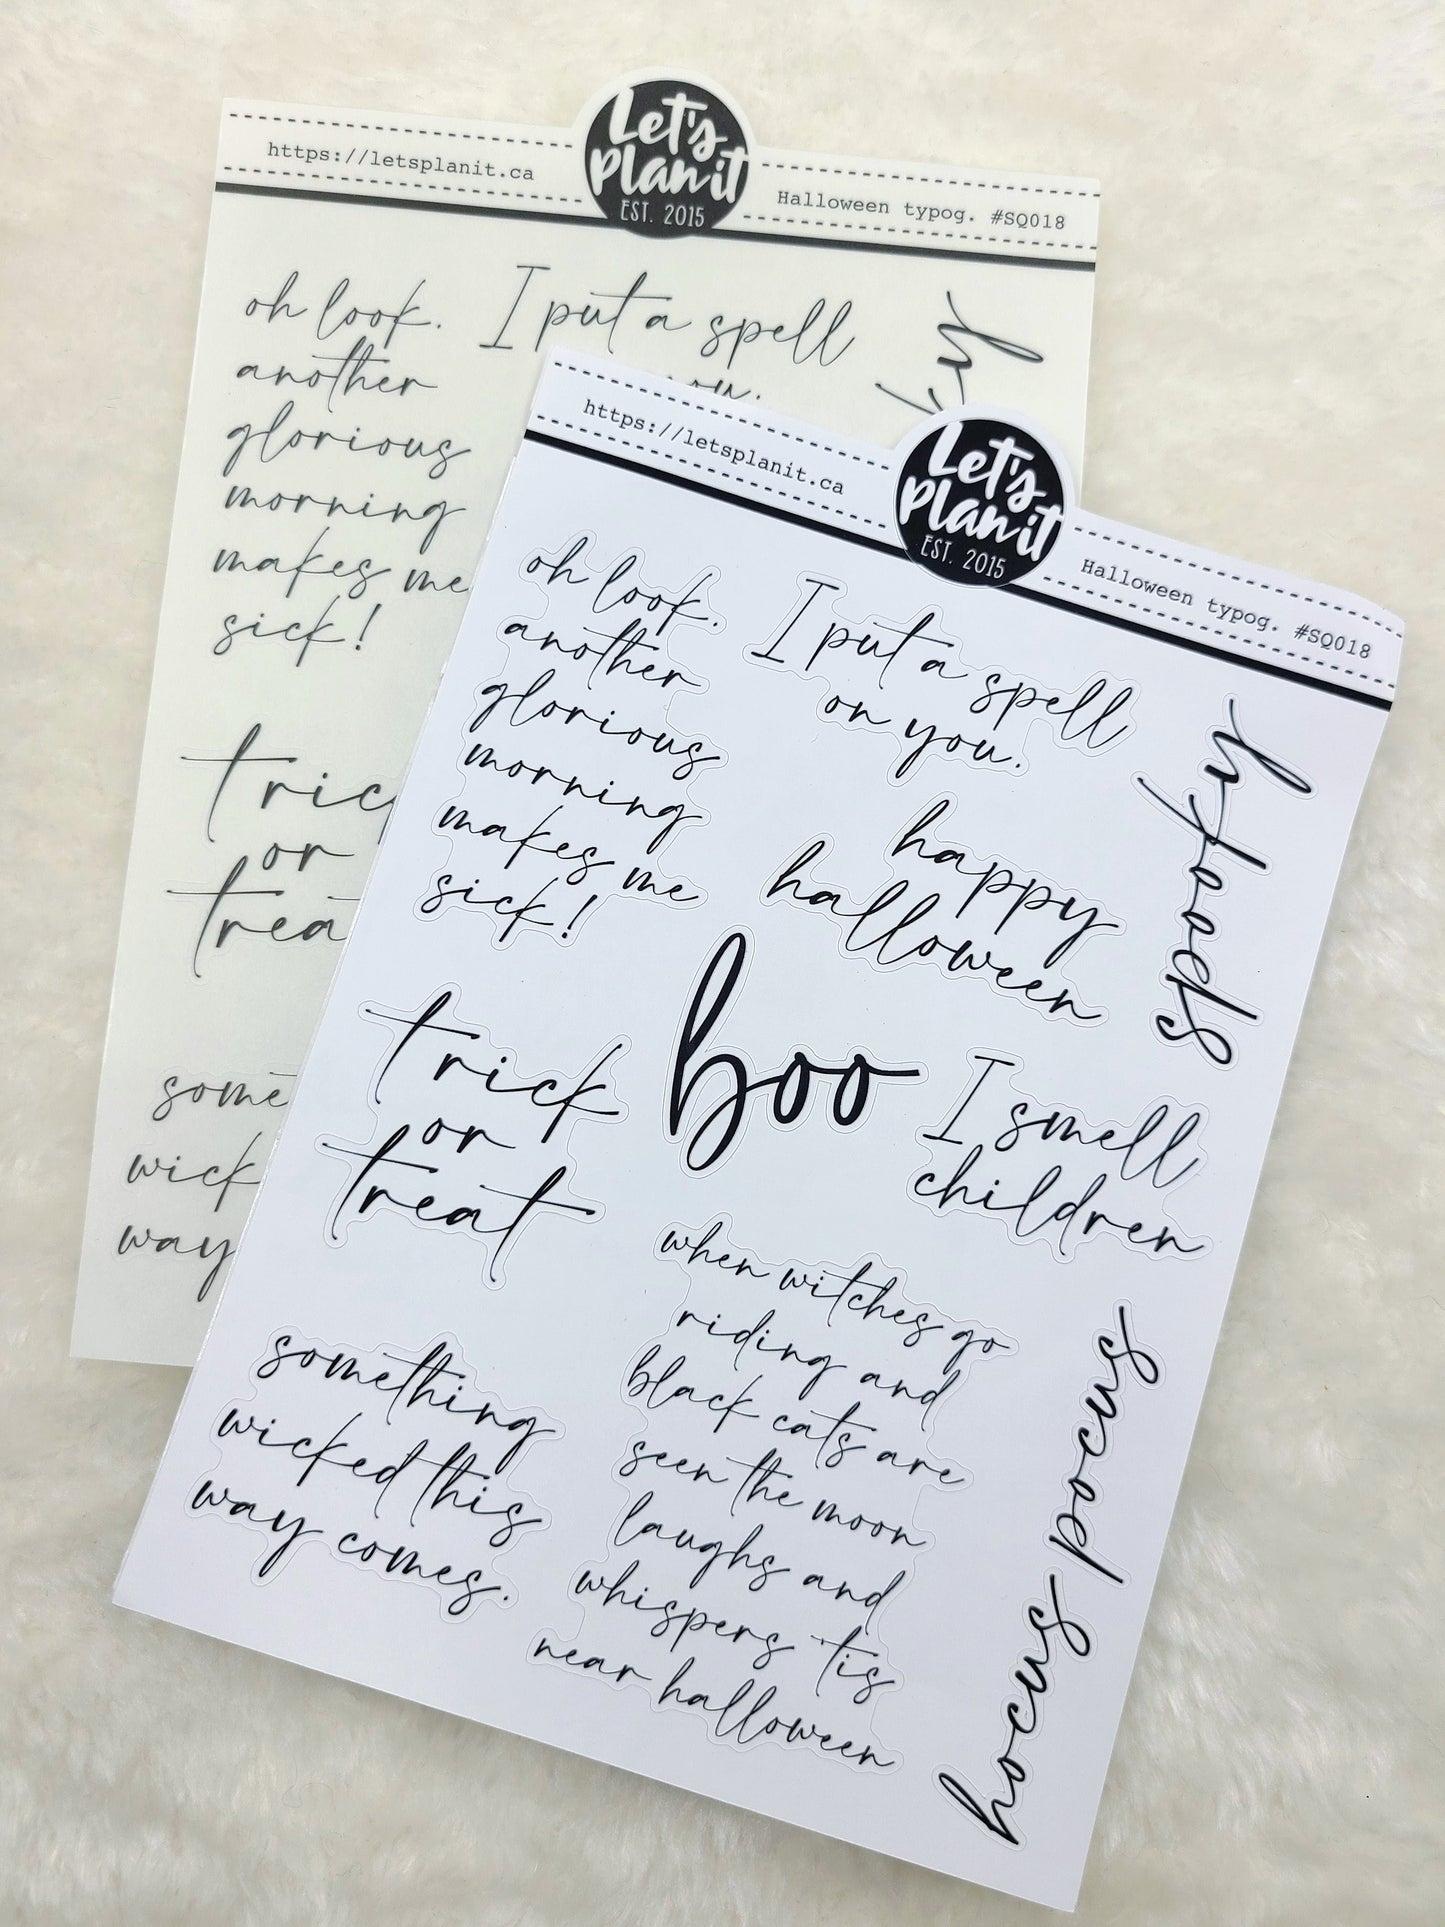 https://letsplanit.ca
Let's
Plan it
EST. 2015
Halloween typog. #SQ018
oh look.
another
glorious
morning
makes me
sick!
I put a spell
you.
ky
trick
or
treat
some
wick
way
https://letsplanit.ca
Let's
Plan it
EST. 2015
Halloween typog. #SQ018
oh look.
another
glorious
morning
makes me
sick!
I put a spell
on you.
happy
halloween
spooky
trick
or
treat
boo
I smell
children
something
wicked this
way comes.
when witches go
riding and
black cats are
seen the moon
laughs and
whispers 'tis
near halloween
hocus pocus